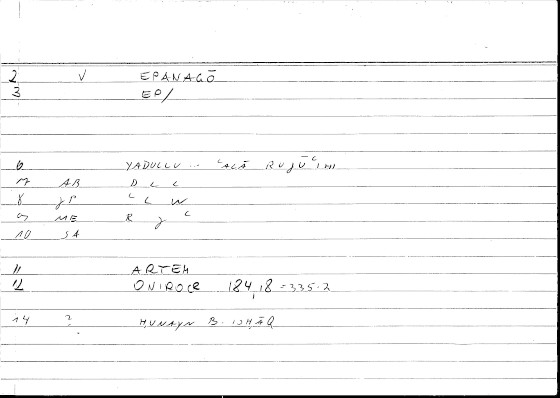 2 V EPANAGŌ
3 EP/
6 YADULLU — ʿALĀ RUǧŪʿIHI
7 AB D L L
8 JP ʿ L W
9 ME R J ʿ
10 SA
11 ARTEM
12 ONIROCR 184,18 = 335.2
14 ? ḤUNAYN B. ISḤĀQ